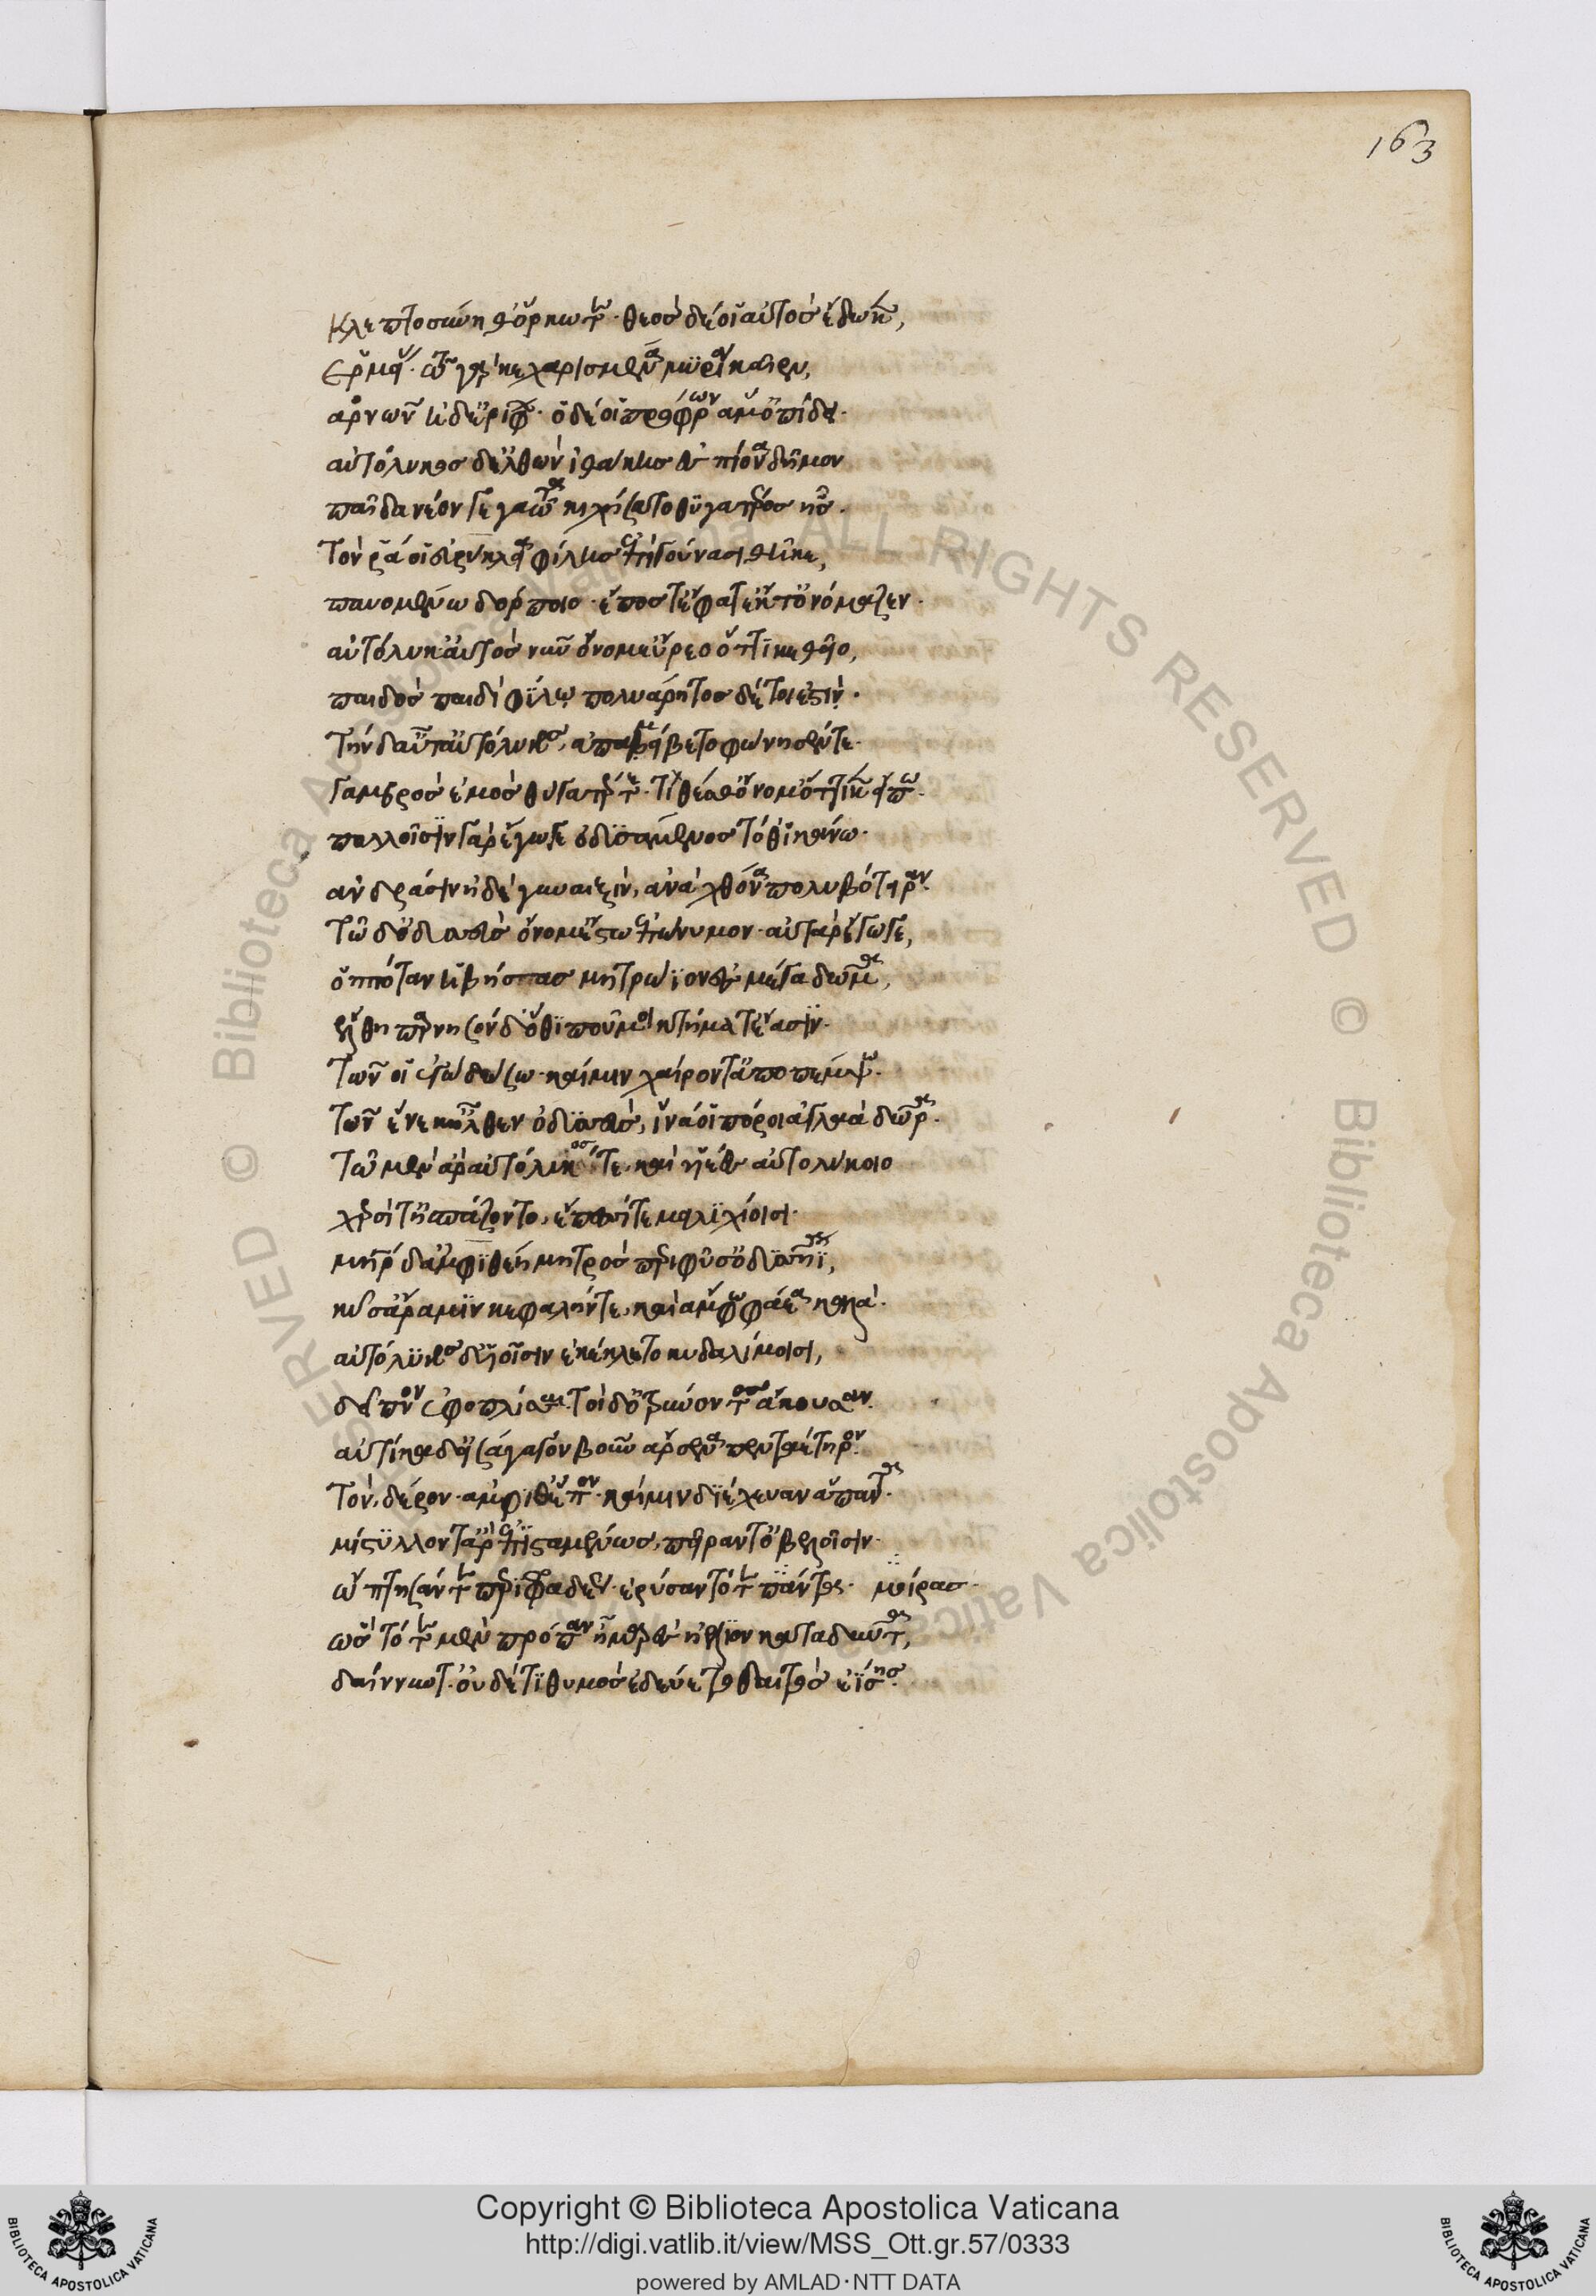 κλεπτοσύνη θ' ὅρκω τε· θεὸς δέ οἱ αὐτὸς ἔδωκεν,
Ἑρμείας· τῶ γὰρ κεχαρισμένα μηρία καῖεν,
ἀρνῶν ἠδ' ἐρίφων· ὁ δέ οἱ πρόφρων ἅμ' ὀπήδει·
αὐτόλυκος δ' ἐλθὼν ἰθάκης ἐς πίονα δῆμον
παῖδα νέον γεγαῶτα κιχήσατο θυγατέρος ἧς·
τόν ῥά οἱ εὐρύκλεια φίλοις ἐπὶ γούνασι θῆκε,
παυομένω δόρποιο· ἔπος τ' ἔφατ' ἔκ τ' ὀνόμαζεν·
αὐτόλυκ' αὐτὸς νῦν ὄνομ' εὕρεο ὅττι κε θεῖο,
παιδὸς παιδὶ φίλω πολυάρητος δέ τοι ἐστίν·
τὴν δ' αὖτ' αὐτόλυκος, ἀπαμείβετο φώνησέν τε·
γαμβρὸς ἐμὸς θύγατέρ τε· τίθεσθ' ὄνομ' ὅττι κεν εἴπω·
πολλοῖσιν γὰρ ἔγωγε ὀδυσσάμενος τόδ' ἱκάνω·
ἀνδράσιν ἠδὲ γυναιξίν, ἀνὰ χθόνα πολυβότειραν·
τῶ δ' ὀδυσεὺς ὄνομ' ἔστω ἐπώνυμον· αὐτὰρ ἔγωγε,
ὁππόταν ἡβήσας μητρώιον ἐς μέγα δῶμα,
ἔλθη παρνησόνδ' ὅθι πού μοι κτήματ' ἔασιν·
τῶν οἱ ἐγὼ δώσω· καί μιν χαίροντ' ἀποπέμψω·
τῶν ἕνεκ' ἦλθεν ὀδυσεύς, ἵνα οἱ πόροι ἀγλαὰ δῶρα·
τὸν μὲν ἄρ' αὐτόλυκός τε, καὶ υἱέες αὐτολύκοιο
χερσί τ' ἠσπάζοντο, ἔπεσσί τε μειλιχίοισι·
μήτηρ δ' ἀμφιθέη μητρὸς περιφῦσ' ὀδυσῆι,
κύσσ' ἄρα μιν κεφαλήν τε, καὶ ἄμφω φάεα καλά·
αὐτόλυκος δ' υἱοῖσιν ἐκέκλετο κυδαλίμοισι,
δεῖπνον ἐφοπλίσσαι· τοὶ δ' ὀτρύνοντος ἄκουσαν·
αὐτίκα δ' εἰσάγαγον βοῦν ἄρσενα πενταέτηρον·
τὸν, δέρον· ἀμφί θ' ἕπον· καί μιν διέχευαν ἅπαντα·
μίστυλλόν τ' ἄρ' ἐπισταμένως, πεῖράν τ' ὀβελοῖσιν·
ὤπτησάν τε περιφραδέως· ἐρύσαντό τε πάντες· μοίρας·
ὣς τότε μὲν πρόπαν ἦμαρ ἐς ἠέλιον καταδύντα,
δαίνυντ'· οὐδέ τι θυμὸς ἐδεύετο δαιτὸς ἐίσης·
163
Copyright © Biblioteca Apostolica Vaticana
http://digi.vatlib.it/view/MSS_Ott.gr.57/0333
powered by AMLAD·NTT DATA